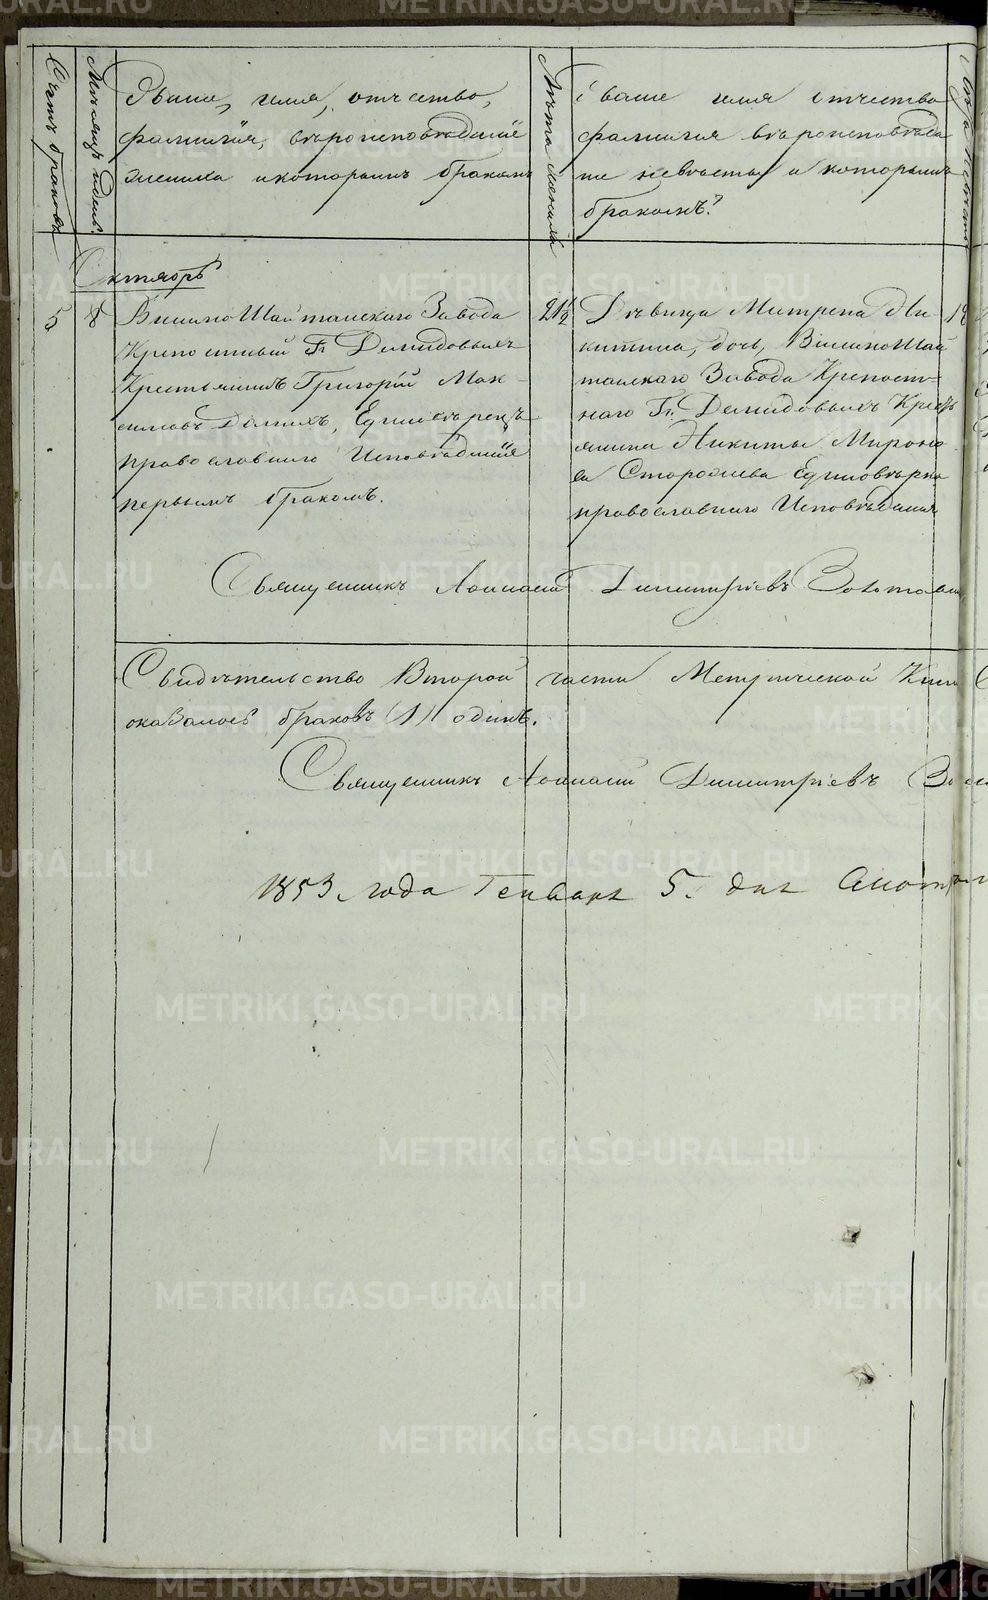 Счетъ браковъ
Мѣсяцъ и день.
Званіе, имя, отчество,
фамилія, вѣроисповѣданіе
жениха и которымъ бракомъ
Лѣта жениха
Званіе имя отчество
фамилія вѣроисповѣда
ніе невѣсты и которымъ
бракомъ?
Октябрь
5
8
Висимо Шайтанскаго Завода
Крепостный Гг. Демидовыхъ
Крестьянинъ Григорій Мак-
симовъ Единоверецъ
православнаго Исповѣданія
первымъ бракомъ.
21½
Дѣвица Матрена Ни-
китина, дочь, Висимо Шай
танскаго Завода Крепост-
наго Гг. Демидовыхъ Крест
янина Никиты Миронов
Единовѣрно
православнаго Исповѣданія
18
Священникъ Димитріевъ
Свидѣтельство Второй части Метрической Кни
оказалось браковъ (1) одинъ.
Священникъ Димитріевъ
1853 года Генваря 5. дня
METRIKI.GASO-URAL.RU